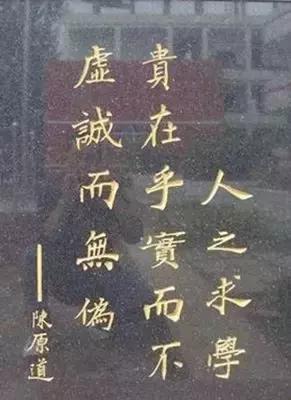 人之求學
貴在乎實而不
虛誠而無偽
——陳原道